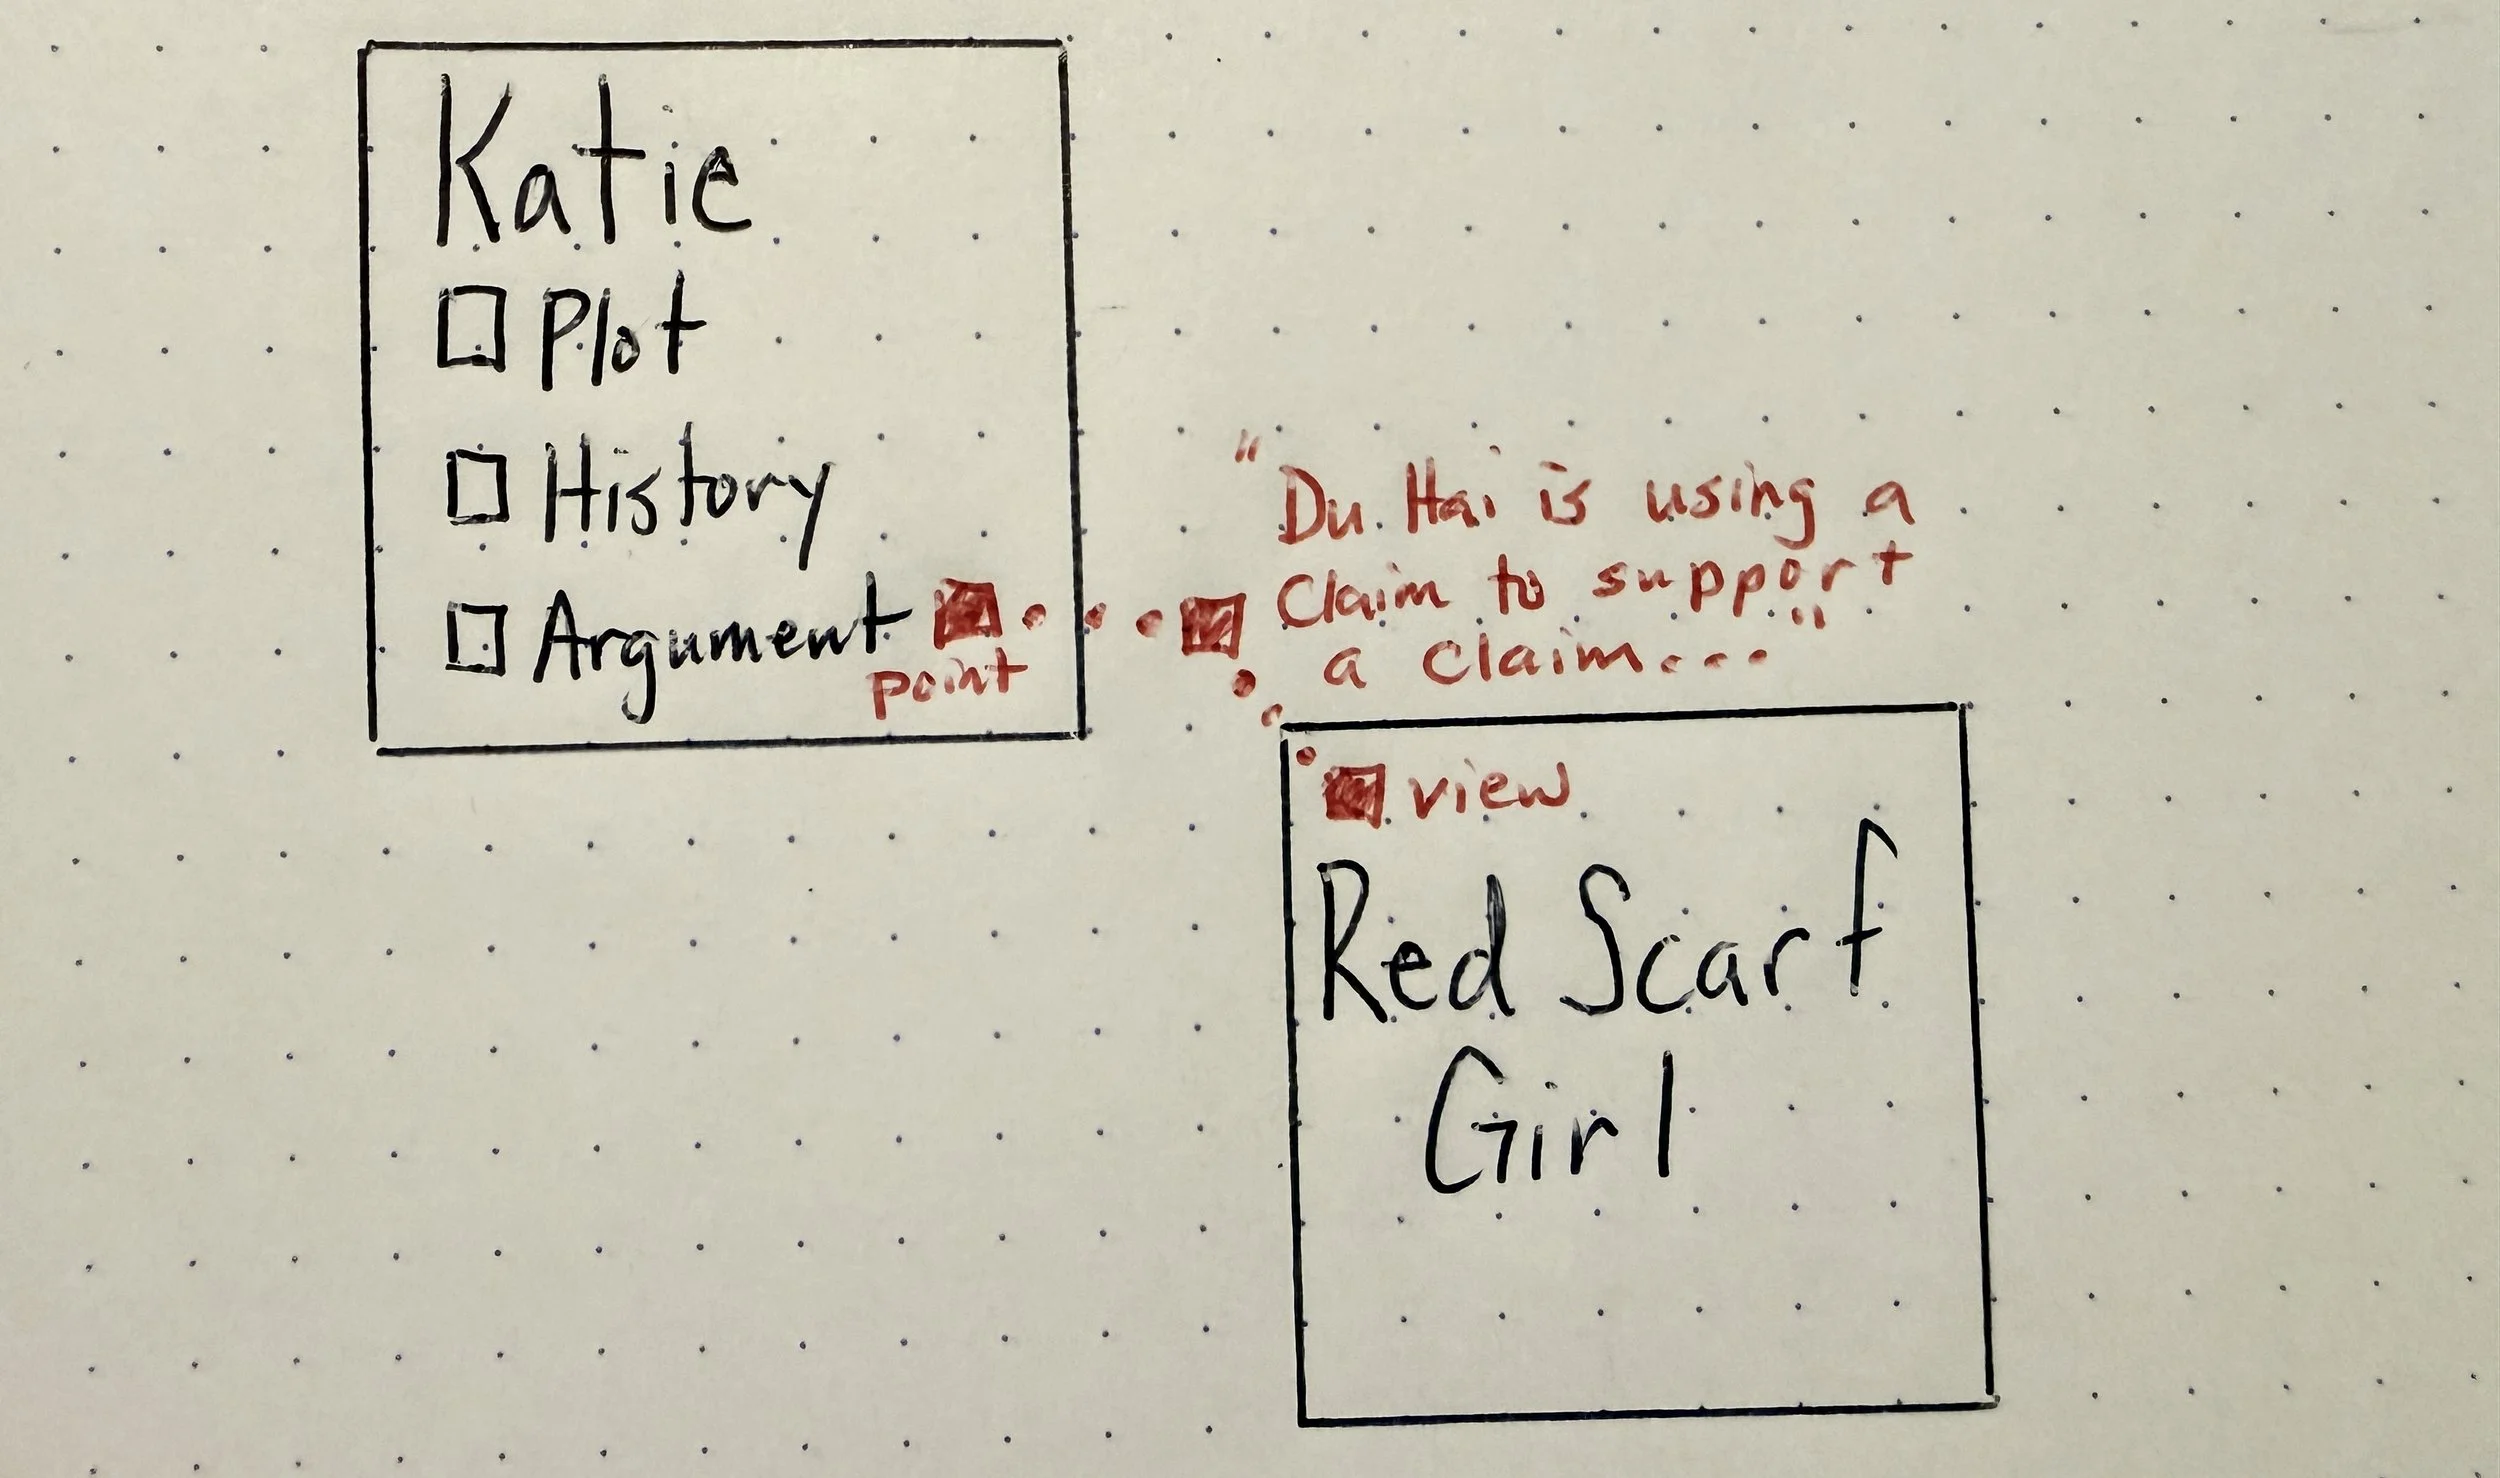 Katie
Plot
History
Argument
point
"Du Hai is using a
Claim to support
a claim..."
view
Red Scarf
Girl